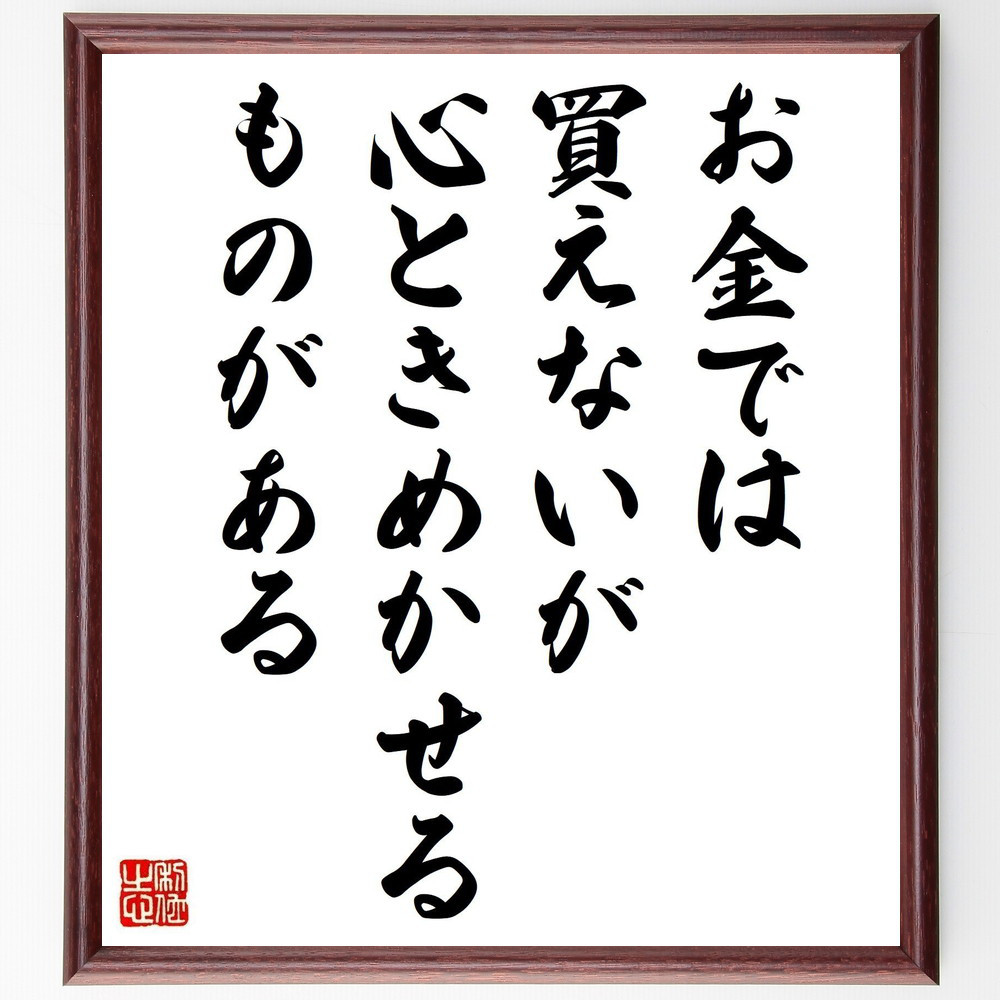 お金では
買えないが
心ときめかせる
ものがある